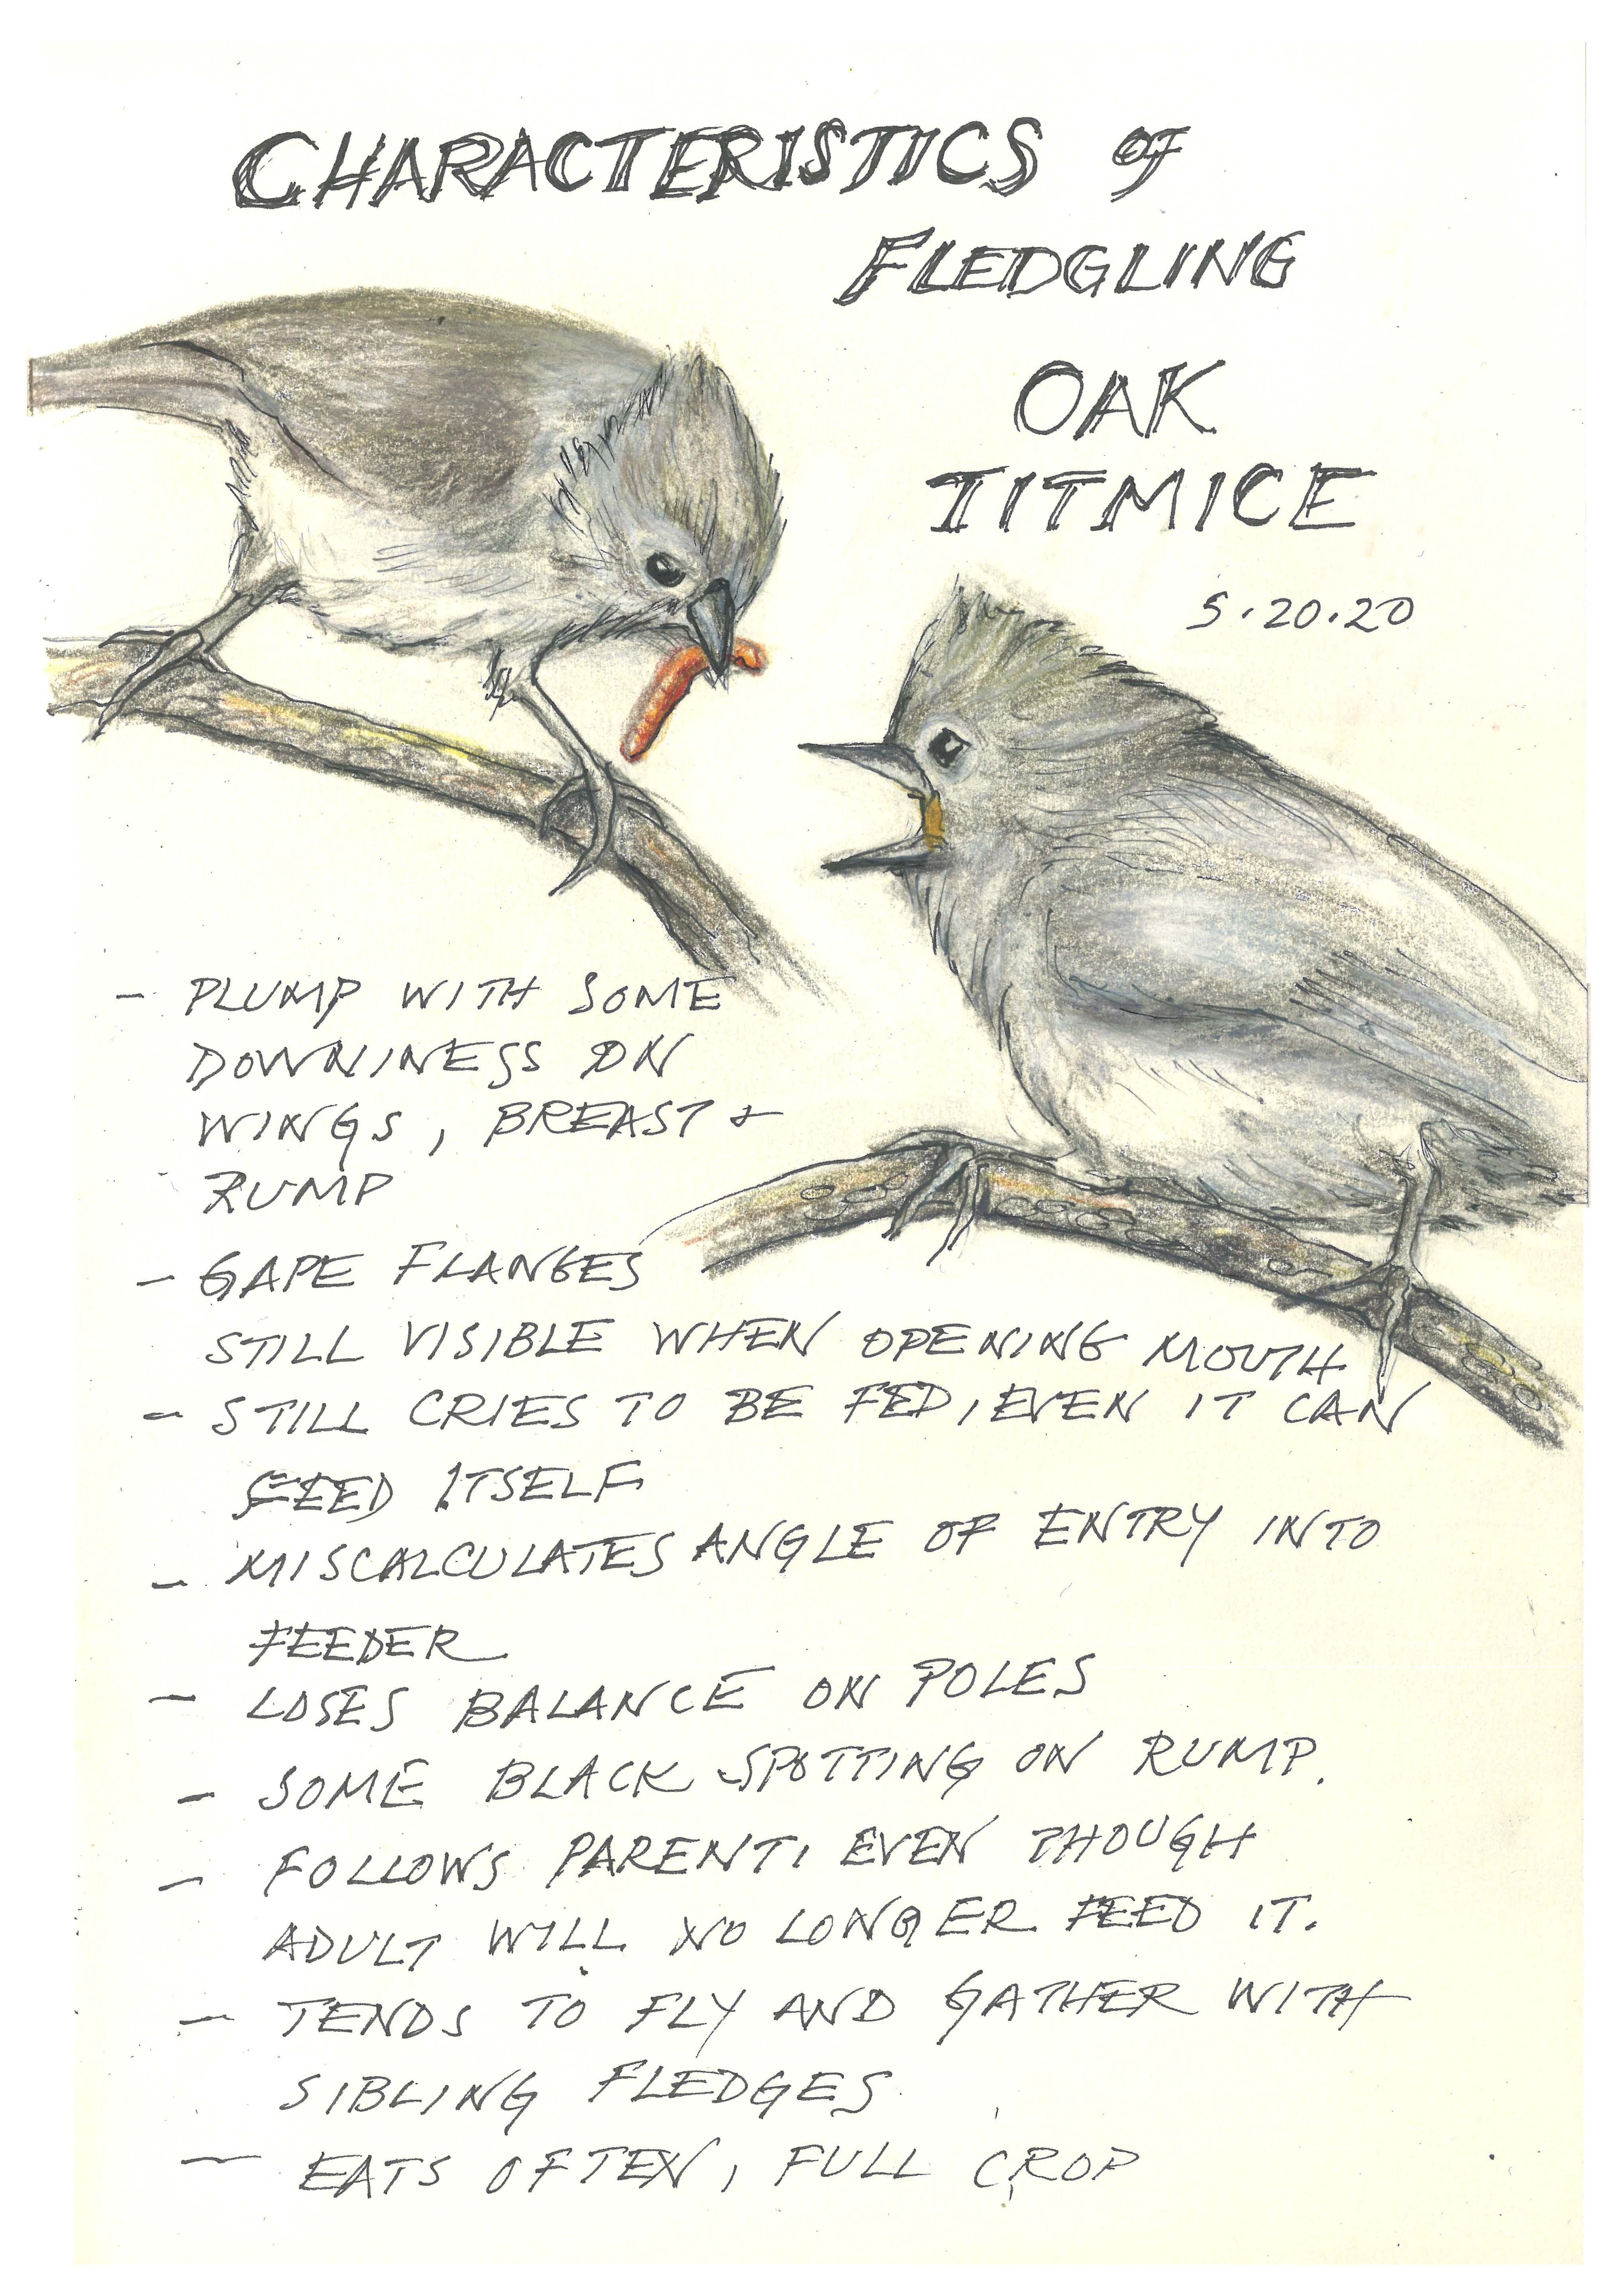 CHARACTERISTICS OF
FLEDGLING
OAK
TITMICE
5.20.20
- PLUMP WITH SOME
DOWNINESS ON
WINGS, BREAST &
RUMP
- GAPE FLANGES
STILL VISIBLE WHEN OPENING MOUTH
- STILL CRIES TO BE FED, EVEN IT CAN
FEED ITSELF
- MISCALCULATES ANGLE OF ENTRY INTO
FEEDER
- LOSES BALANCE ON POLES
- SOME BLACK SPOTTING ON RUMP.
- FOLLOWS PARENT, EVEN THOUGH
ADULT WILL NO LONGER FEED IT.
- TENDS TO FLY AND GATHER WITH
SIBLING FLEDGES
- EATS OFTEN, FULL CROP